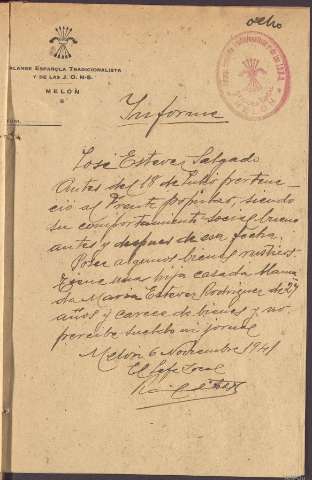 ocho
FALANGE ESPAÑOLA TRADICIONALISTA
Y DE LAS J. O. N-S.
MELÓN
NÚM.
Informe
José Estevez Salgado
Antes del 18 de Julio pertene-
ció al Frente popular, siendo
su comportamiento social bueno
antes y despues de esa fecha.
Posee algunos bienes rusticos
Tiene una hija casada llama
da Maria Estevez Rodriguez de 27
años y carece de bienes y no
percibe sueldo ni jornal
Melon 6 Noviembre 1941
El Jefe Local